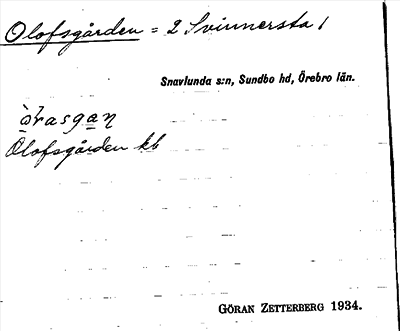 Olofsgården = 2 Svinnersta 1
Snavlunda s:n, Sundbo hd, Örebro län.
òrasgaŋ
Olofsgården kb
GÖRAN ZETTERBERG 1934.